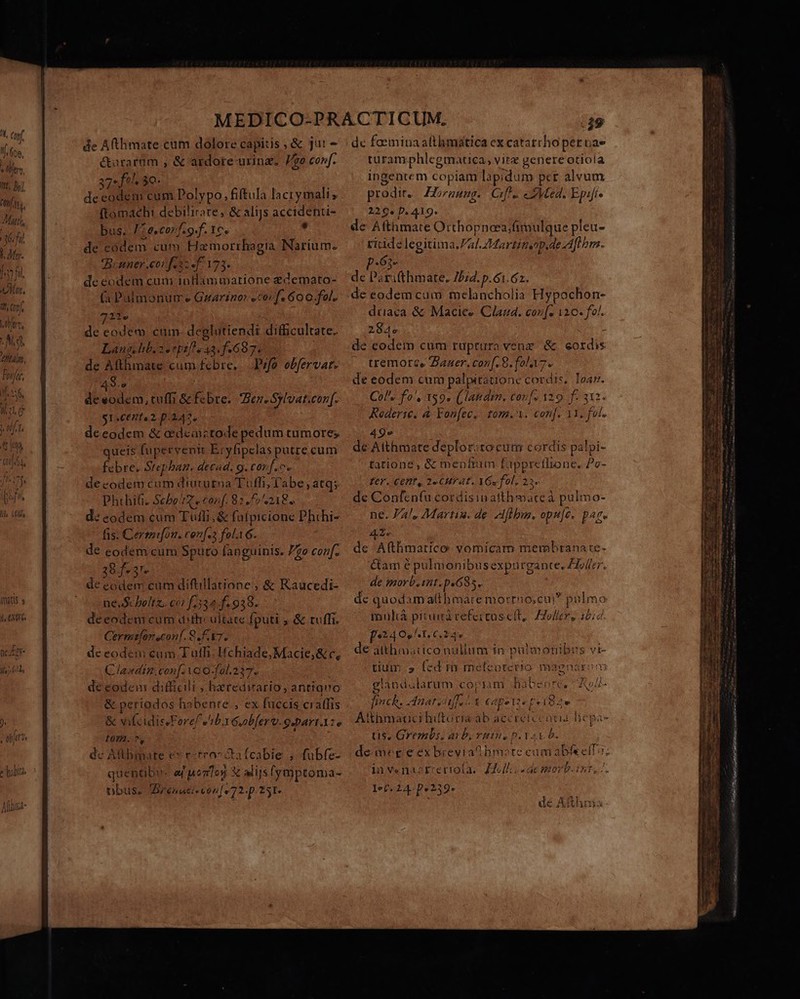 MEDICO-PRACTICUM. 39
de Aſthmate cum dolore capitis, & jun-
cturarum, & ardore urinæ. Vgo conſ.
37. fol. 30.
de eodem cum Polypo, fiſtula lacrymali,
ſtomachi debilitate, & alijs accidenti-
bus.
de eodem cum Hæmorrhagia Narium.
173.
de eodem cum inflammatione ædemato-
ſa Pulmonum. Guarinon. conſ. 600. fol.
de eodem cum deglutiendi difficultate.
43. f. 687.
de Aſthmate cum febre. Piſo obſervat.
48.
de eodem, tuſſi & febre. Ben. Sylvat. conſ.
51. cent. 2. p. 243.
de eodem & œdematode pedum tumore,
queis ſupervenit Eryſipelas putre cum
febre. Stephan. decad. 9. conſ.
de eodem cum diuturna Tuſſi, Tabe, atq;
Phthiſi. Scholtz. conſ. 82. fol. 218.
de eodem cum Tuſſi, & ſuſpicione Phthi-
ſis. Cermiſon. conſ. 3. fol. 6.
de eodem cum Sputo ſanguinis. Vgo conſ.
38. f. 31.
de eodem cum diſtillatione, & Raucedi-
ne. Scholtz. conſ. 334. f. 938.
de eodem cum difficultate ſputi, & tuſſi.
Cermiſon. conſ. 8. f. 17.
de eodem cum Tuſſi, Iſchiade, Macie, & c,
Claudin. conſ. 100. fol. 237.
de eodem difficili, hæreditario, antiquo
& periodos habente, ex ſuccis craſſis
& viſcidis. Foreſ. lib. 16. obſerv. 9. part. 12.
tom. 2.
de Aſthmate ex retro- acta ſcabie, ſubſe-
quentibus & alijs ſymptoma-
tibus. conſ. 72. p. 251.
de fœmina aſthmatica ex catarrho per na-
turam phlegmatica, vitæ genere otioſa
ingentem copiam lapidum per alvum
prodit. Hornung. Ciſt. Med. Epiſt.
229. p. 419.
de Aſthmate Orthopnœa, ſimulque pleu-
ritide legitima. Val. Martin. op. de Aſthm.
p. 63.
de Pariſthmate. Ibid. p. 61. 62.
de eodem cum melancholia Hypochon-
driaca & Macie. Claud. conſ. 120. fol.
284.
de eodem cum ruptura venæ & cordis
tremore. Bauer. conſ. 8. fol. 17.
de eodem cum palpitatione cordis. Ioan.
Coll. fol. 159. Claudin. conſ. 129. f. 312.
Roderic. à Fonſec. tom. 1. conſ. 11. fol.
49.
de Aſthmate deplorato cum cordis palpi-
tatione, & menſium ſuppreſſione. Po-
ter. cent. 2. curat. 16. fol. 23.
de Conſenſu cordis in aſthmate à pulmo-
ne. Val. Martin. de Aſthm. opuſc. pag.
42.
de Aſthmatico vomicam membrana te-
ctam è pulmonibus expurgante. Holler.
de morb. int. p. 685.
de quodam aſthmate mortuo, cui⁹ pulmo
multâ pituitâ refertus eſt. Holler. ibid.
de aſthmatico nullum in pulmonibus vi-
tium, ſed in meſenterio magnarum
glandularum copiam habente. Roll-
finck.
Aſthmatici hiſtoria ab accreſcentia hepa-
tis. Grembſ.
de muliere ex brevia aſthmate cum abſceſſu
in vena arterioſa. Holler. de morb. int.
1. c. 24. p. 239.
de Aſthma-